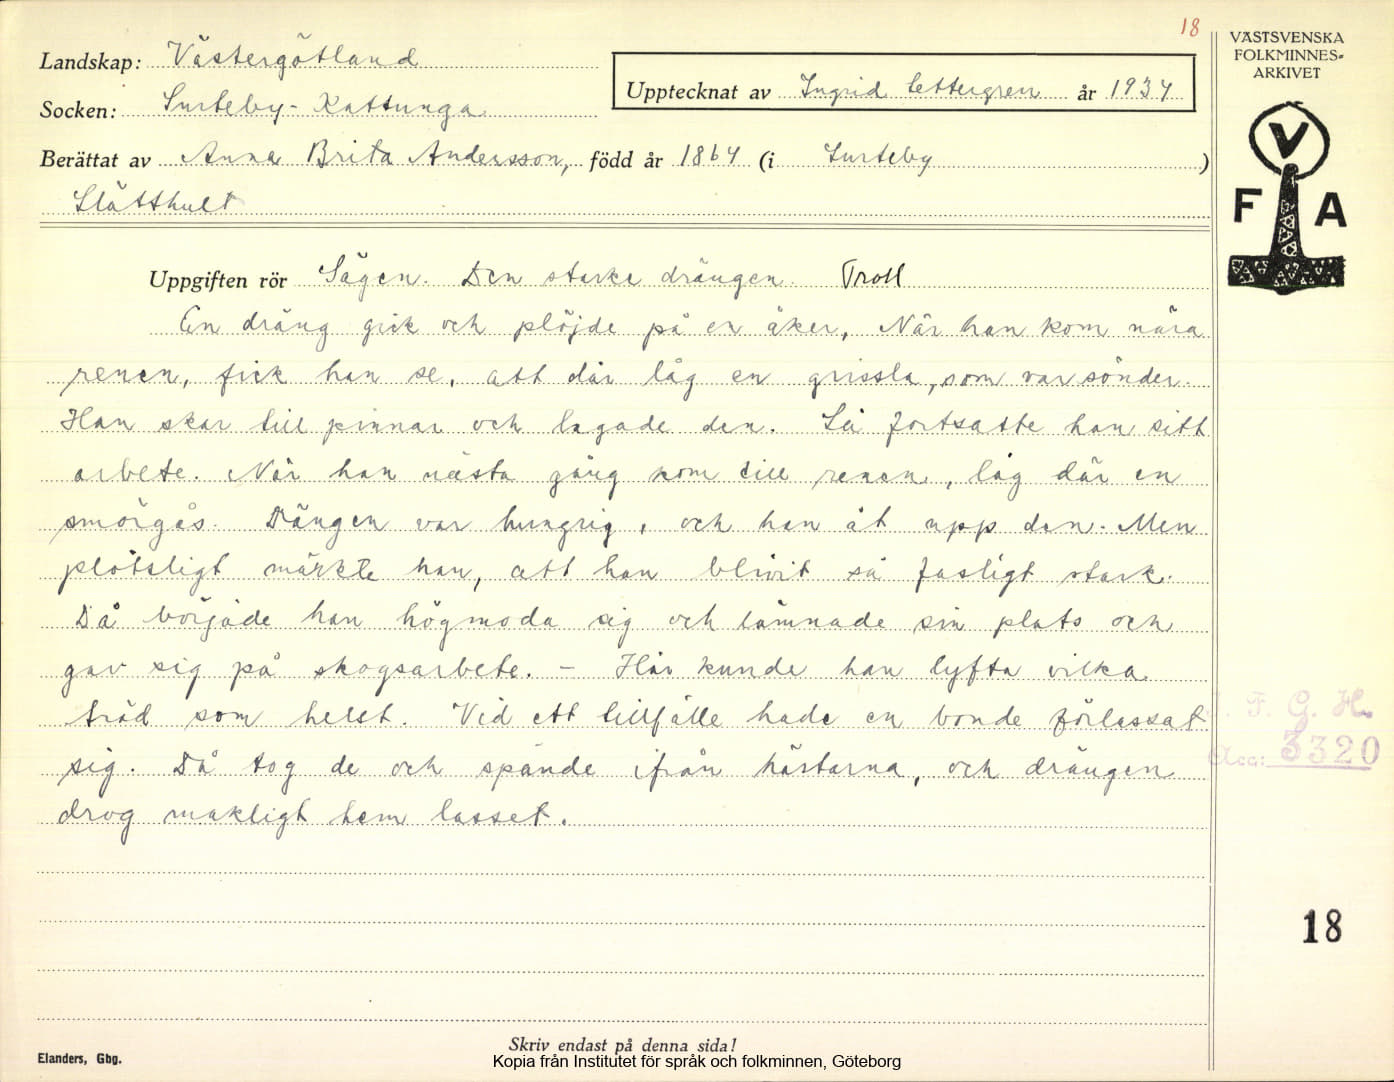 18
VÄSTSVENSKA
FOLKMINNES-
ARKIVET
V
F A
Landskap: Västergötland
Socken: Surteby-Kattunga
Upptecknat av Ingrid Settergren år 1934
Berättat av Anna Brita Andersson, född år 1864 (i Surteby )
Slätthult
Uppgiften rör Sägen. Den starke drängen. Troll
En dräng gick och plöjde på en åker. När han kom nära
renen, fick han se, att där låg en grissla, som var sönder.
Han skar till pinnar och lagade den. Så fortsatte han sitt
arbete. När han nästa gång kom till renen, låg där en
smörgås. Drängen var hungrig, och han åt upp den. Men
plötsligt märkte han, att han blivit så fasligt stark.
Då började han högmoda sig och lämnade sin plats och
gav sig på skogsarbete. – Här kunde han lyfta vilka
träd som helst. Vid ett tillfälle hade en bonde förlassat
sig. Då tog de och spände ifrån hästarna, och drängen
drog makligt hem lasset.
I. F. G. H.
Acc: 3320
18
Skriv endast på denna sida!
Elanders, Gbg.
Kopia från Institutet för språk och folkminnen, Göteborg